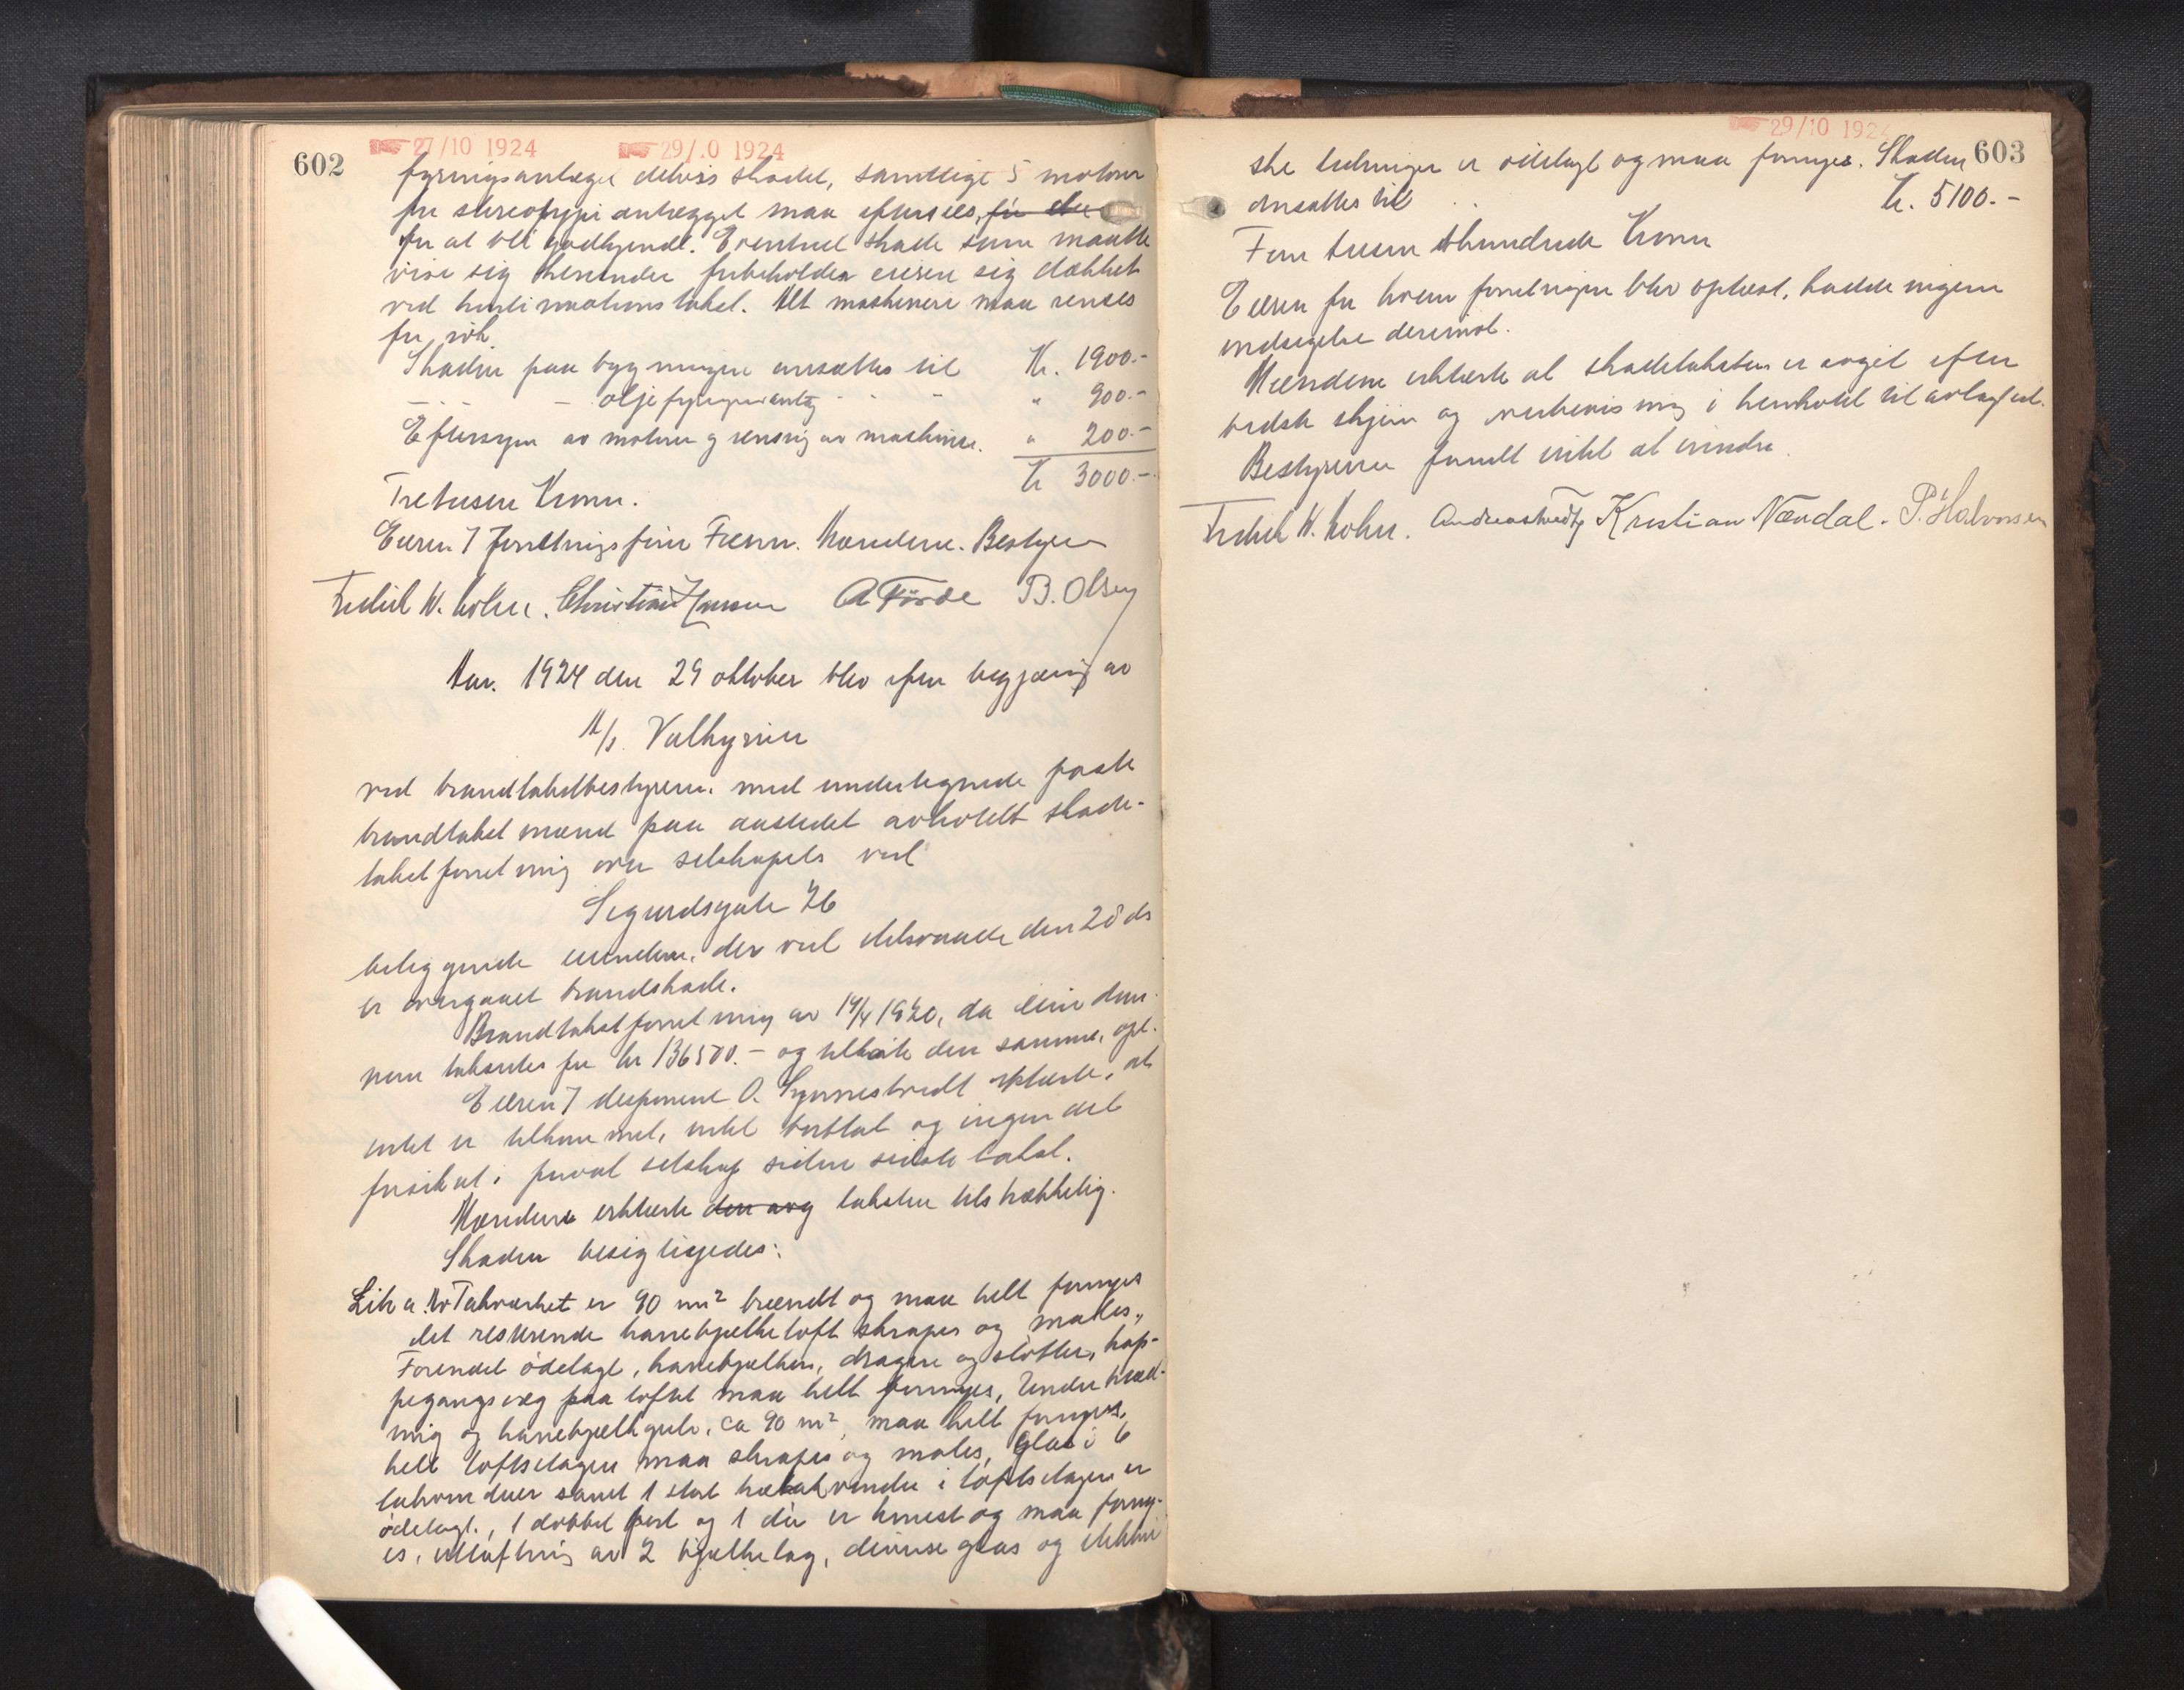 27/10 1924 29/.0 1924
602
fyringsanlægget delvis skadet, samtlige 5 motorer
for stereotypi anlægget maa efterses, før de
for at bli godkjendt. Eventuel skade som maatte
vise sig herunder forbeholder eieren sig dækket
ved senere taksttakst. Alt maskineri maa renses
for sot.
Skaden paa bygningen ansættes til Kr. 1900.-
- - - oljefyringsanlæg - - - " 900.-
Eftersyn av motorer og rensing av maskineri. " 200.-
Kr 3000.-
Tretusen Kroner.
Eieren 7 forretningsfører Fienn. Mændene. Bestyreren
Fredrik W. Kohn. Christian Jansen A Førde B. Olsen
Aar. 1924 den 29 oktober blev efter begjæring av
A/S. Valkyrien
ved brandtakstbestyreren med undertegnede faste
brandtakstmænd paa aastedet avholdt skade-
takstforretning over selskapets ved
Sigurdsgate 26
beliggende eiendom, der ved ildsvaade den 28 ds
er overgaaet brandskade.
Brandtakstforretning av 14/4 1920, da eiendom-
men takseredes for kr 136500.- og tillike den samme, opl.
Eieren 7 disponent O. Synnestvedt erklærte, at
intet er tilkommet, intet borttat og ingen del
forsikret i privat selskap siden sidste takst.
Mændene erklærte den avg taksten tilstrækkelig.
Skaden besigtigedes:
Litra. A Takverket er 90 m² brændt og maa helt fornyes
det resterende hanebjelkeloft skrapes og males,
Forøvrig ødelagt, hanebjelker, dragere og stolper, trap-
pegangsvæg paa loftet maa helt fornyes, Under træd-
ning og hanebjelkgulv, ca 90 m², maa helt fornyes,
hele loftsetagen maa skrapes og males, Glas i 6
takvinduer samt 1 stort takvindu i loftsetagen er
ødelagt., 1 dobbel port og 1 dør er knust og maa forny-
es, utluftning av 2 bjelkelag, diverse glas og elektri
29/10 1924
603
ske ledninger er ødelagt og maa fornyes. Skaden
ansættes til Kr. 5100.-
Fem tusen ethundrede Kroner
Eieren for hvem forretningen blev oplæst, hadde ingen
indsigelse derimot.
Mændene erklærte at skadetaksten er avgit efter
bedste skjøn og overbevisning i henhold til avlagt ed.
Bestyreren fandt intet at erindre.
Fredrik W. Kohn. Andreas Tvedt Kristian Nændal. P. Halvorsen